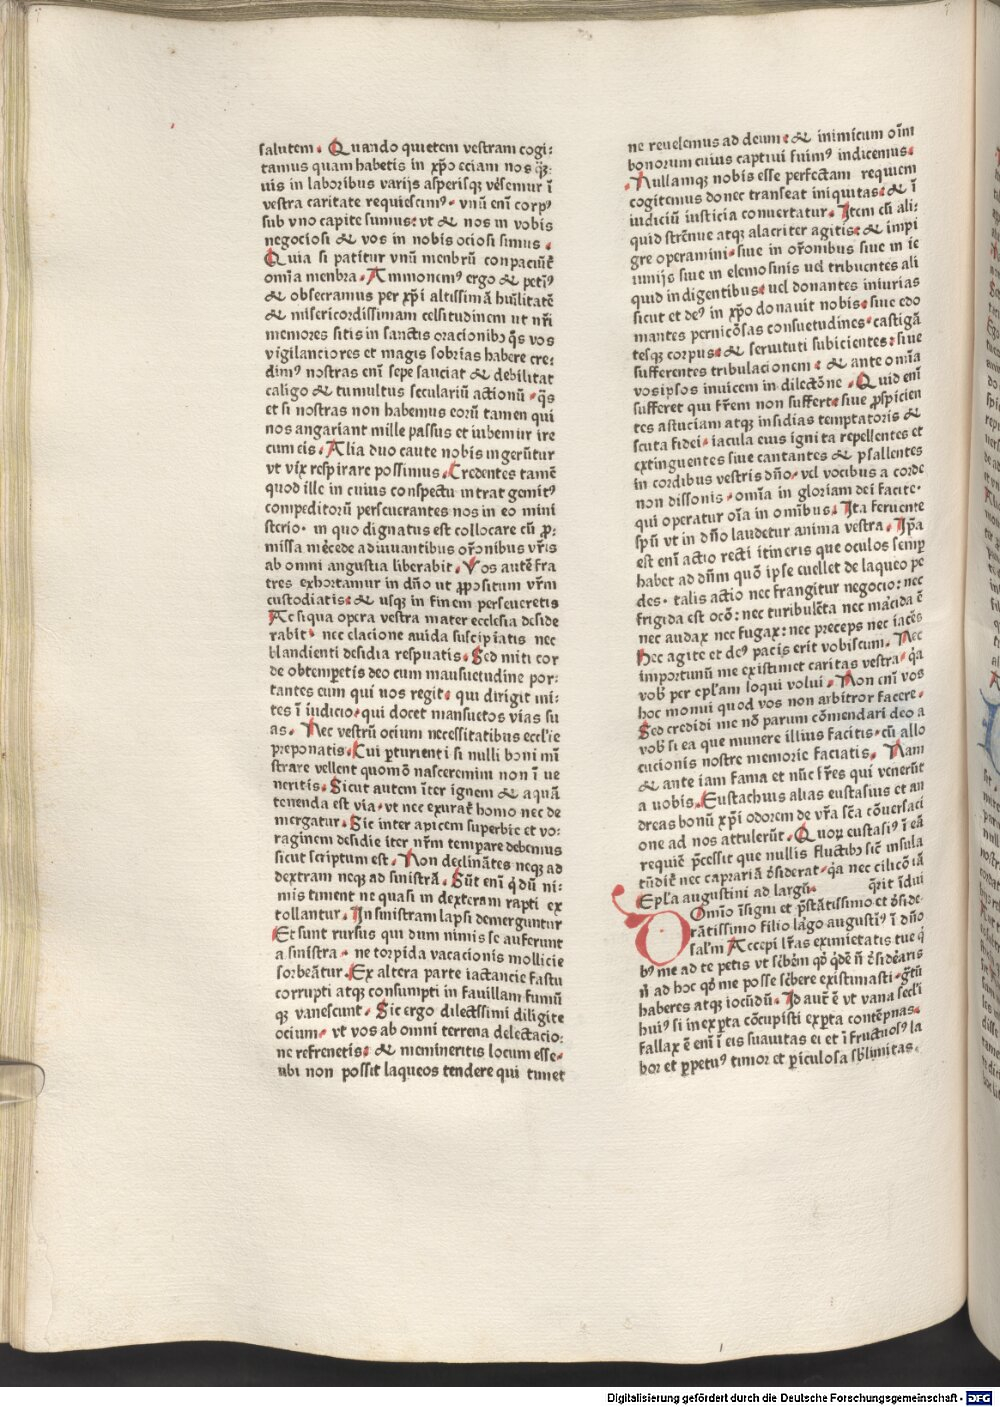 salutem. Quando quietem vestram cogi:
tamus quam habetis in xp̄o eciam nos q̄ꝫ:
uis in laboribus varijs asperisqꝫ v̄semur ī
vestra caritate requiescimꝰ. vnū enī corpꝰ
sub vno capite sumus: vt & nos in vobis
negociosi & vos in nobis ociosi simus.
Quia si patitur vnū menbrū conpaciunt̄
omīa menbra. Ammonemꝰ ergo & petīꝰ
& obsecramus per xp̄i altissimā huīlitatē
& misericordissimam celsitudinem ut nr̄i
memores sitis in sanctis oracionibꝰ q̄s vos
vigilanciores et magis sobrias habere cre:
dimꝰ nostras enī sepe sauciat & debilitat
caligo & tumultus seculariū actionū. q̄s
et si nostras non habemus eorū tamen qui
nos angariant mille passus et iubemur ire
cum eis. Alia duo caute nobis ingerūtur
vt vix respirare possimus. Credentes tamē
quod ille in cuius conspectu intrat gemitꝰ
compeditorū perseuerantes nos in eo mini
sterio. in quo dignatus est collocare cū ꝓ:
missa mc̄ede adiuuantibus or̄onibus vr̄is
ab omni angustia liberabit. Vos autē fra
tres exhortamur in dn̄o ut ꝓpositum vr̄m
custodiatis: & usqꝫ in finem perseueretis
Ac siqua opera vestra mater ecclesia deside
rabit. nec elacione auida suscipiatis nec
blandienti desidia respuatis. Sed miti cor
de obtemꝑetis deo cum mansuetudine por:
tantes eum qui uos regit. qui dirigit mi:
tes ī iudicio. qui docet mansuetos vias su
as. Nec vestrū ocium necessitatibus eccl'ie
preponatis. Cui ꝑturienti si nulli boni mī
strare vellent quomō nasceremini non ī ue
neritis. Sicut autem īter ignem & aquā
tenenda est via. vt nec exurat̄ homo nec de
mergatur. Sic inter apicem superbie et vo:
raginem desidie iter nr̄m temꝑare debemus
sicut scriptum est. Non declināntes neqꝫ ad
dextram neqꝫ ad sinistrā. Sūt enī q̇ dū ni:
mis timent ne quasi in dexteram rapti ex
tollantur. In sinistram lapsi demerguntur
Et sunt rursus qui dum nimis se auferunt
a sinistra. ne torpida vacacionis mollicie
sorbeātur. Ex altera parte iactancie fastu
corrupti atqꝫ consumpti in fauillam fumū
qꝫ vanescunt. Sic ergo dilectissimi diligite
ocium. vt vos ab omni terrena delectacio:
ne refrenetis: & memineritis locum esse.
ubi non possit laqueos tendere qui timet
ne reuelemus ad deum: & inimicum oīm
bonorum cuius captiui fuimꝰ iudicemus.
Nullamqꝫ nobis esse perfectam requiem
cogitemus donec transeat iniquitas: & ī
iudiciū iusticia conuertatur. Item cū ali:
quid strēnue atqꝫ alacriter agitis: & impi
gre operamini. siue in or̄onibus siue in ie
iunijs siue in elemosinis uel tribuentes ali
quid indigentibus: uel donantes iniurias
sicut et deꝰ in xp̄o donauit nobis. siue edo
mantes pernicōsas consuetudines. castigā
tesqꝫ corpus: & seruituti subicientes: siue
sufferentes tribulacionem: & ante omīa
vosipsos inuicem in dilectōne. Quid enī
sufferet qui fr̄em non suffert: siue ꝓspicien
tes astuciam atqꝫ insidias temptatoris &
scuta fidei. iacula eius ignita repellentes et
extinguentes siue cantantes & psallentes
in cordibus vestris dn̄o. vel vocibus a corde
non dissonis. omīa in gloriam dei facite.
qui operatur oīa in omībus. Ita feruente
spū vt in dn̄o laudetur anima vestra. Ip̄a
est enī actio recti itineris que oculos semꝑ
habet ad dn̄m quō ipse euellet de laqueo pe
des. talis actio nec frangitur negocio: nec
frigida est ocō: nec turbulēta nec mac̄ida ē
nec audax nec fugax: nec preceps nec iacēs
Hec agite et deꝰ pacis erit vobiscum. Nec
importunū me existimet caritas vestra. q̇a
vob̄ per epl'am loqui volui. Non enī vos
hoc monui quod vos non arbitror facere.
Sed credidi me nō parum cōmendari deo a
vob̄ si ea que munere illius facitis. cū allo
cucionis nostre memorie faciatis. Nam
& ante iam fama et nūc fr̄es qui venerūt
a uobis. Eustachius alias eustasius et an
dreas bonū xp̄i odorem de vr̄a sc̄a cōuersaci
one ad nos attulerūt. Quoꝝ eustasiꝰ ī eā
requiē p̄cessit que nullis fluctibꝰ sic̄ insula
tūdit̄ nec caprariā ꝯsiderat. q̇a nec cilicō iā
Epl'a augustini ad largū. q̄rit īdui
Domīo īsigni et p̄stātissimo et ꝯside-
rātissimo filio la̓go augustiꝰ ī dn̄o
sal'm Accepi lr̄as eximietatis tue q̇
bꝰ me ad te petis vt sc̄bem q̄ q̇dē n̄ ꝯsidēaris
n̄ ad hoc q̄ me posse sc̄bere existimasti. gr̄tū
haberes atqꝫ iocūdū. Id aut̄ ē vt vana sec̄li
huiꝰ si inexꝑta cōcupisti exꝑta contēpnas.
fallax ē enī ī eis suauitas ei et īfructuosꝰ la
bor et ꝑpetuꝰ timor et ꝑiculosa sb̄limitas.
Digitalisierung gefördert durch die Deutsche Forschungsgemeinschaft - DFG